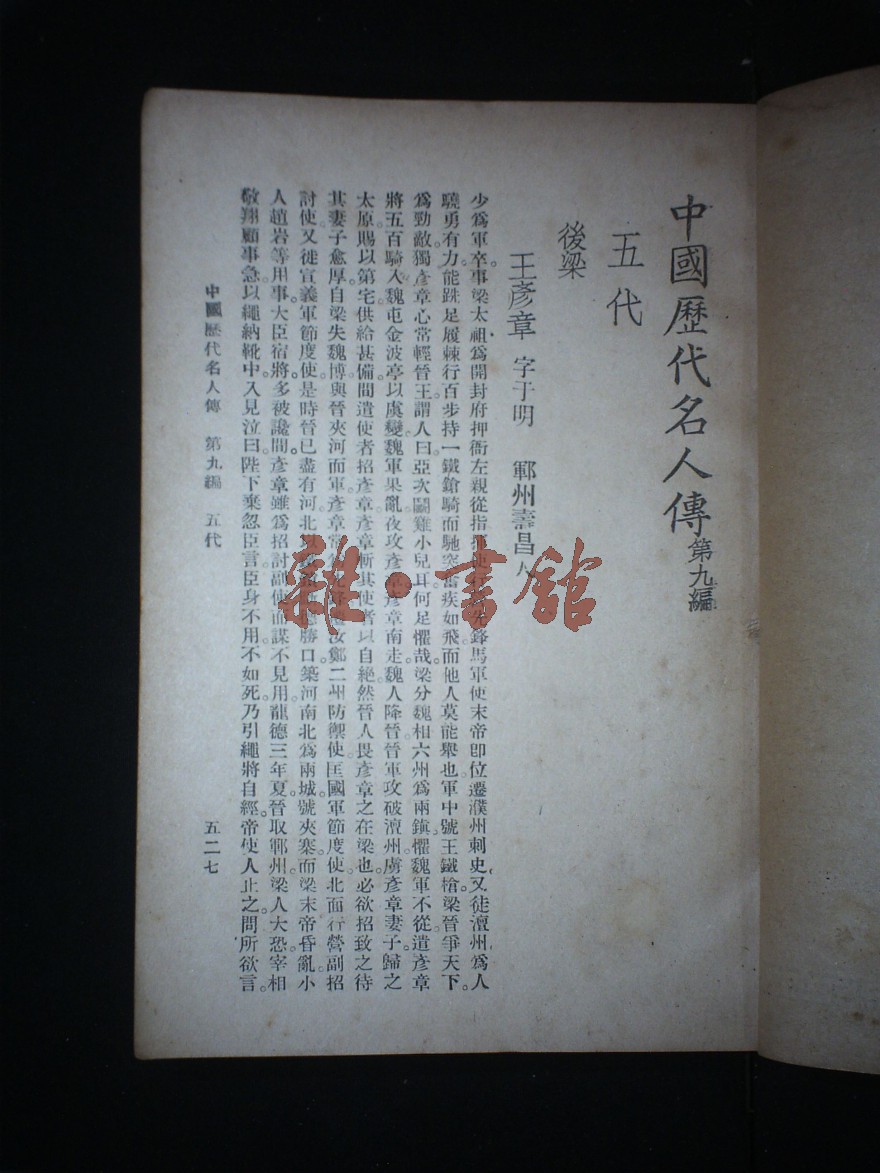 中國歷代名人傳第九編
五代
後梁
王彥章 字于明 鄆州壽昌人
少爲軍卒事梁太祖爲開封府押衙左親從指揮使行營先鋒馬軍使末帝卽位遷濮州刺史又徒澶州爲人
驍勇有力能跣足履棘行百步持一鐵鎗騎而馳突奮疾如飛而他人莫能舉也軍中號王鐵槍梁晉爭天下。
爲勁敵獨彥章心常輕晉王謂人曰亞次鬭雞小兒耳何足懼哉梁分魏相六州爲兩鎭懼魏軍不從遣彥章
將五百騎入魏屯金波亭以虞變魏軍果亂夜攻彥章彥章南走魏人降晉晉軍攻破澶州虜彥章妻子歸之
太原賜以第宅供給甚備間遣使者招彥章彥章斬其使者以自絕然晉人畏彥章之在梁也必欲招致之待
其妻子愈厚自梁失魏博與晉夾河而軍彥章常 汝鄭二州防禦使匡國軍節度使北面行營副招
討使又徙宣義軍節度使是時晉已盡有河北以 德勝口築河南北爲兩城號夾寨而梁末帝昏亂小
人趙岩等用事大臣宿將多被讒間彥章雖爲招討副使而謀不見用龍德三年夏晉取鄆州梁人大恐宰相
敬翔顧事急以繩納靴中入見泣曰陛下棄忽臣言臣身不用不如死乃引繩將自經帝使人止之問所欲言。
中國歷代名人傳 第九編 五代 五二七
雜·書館